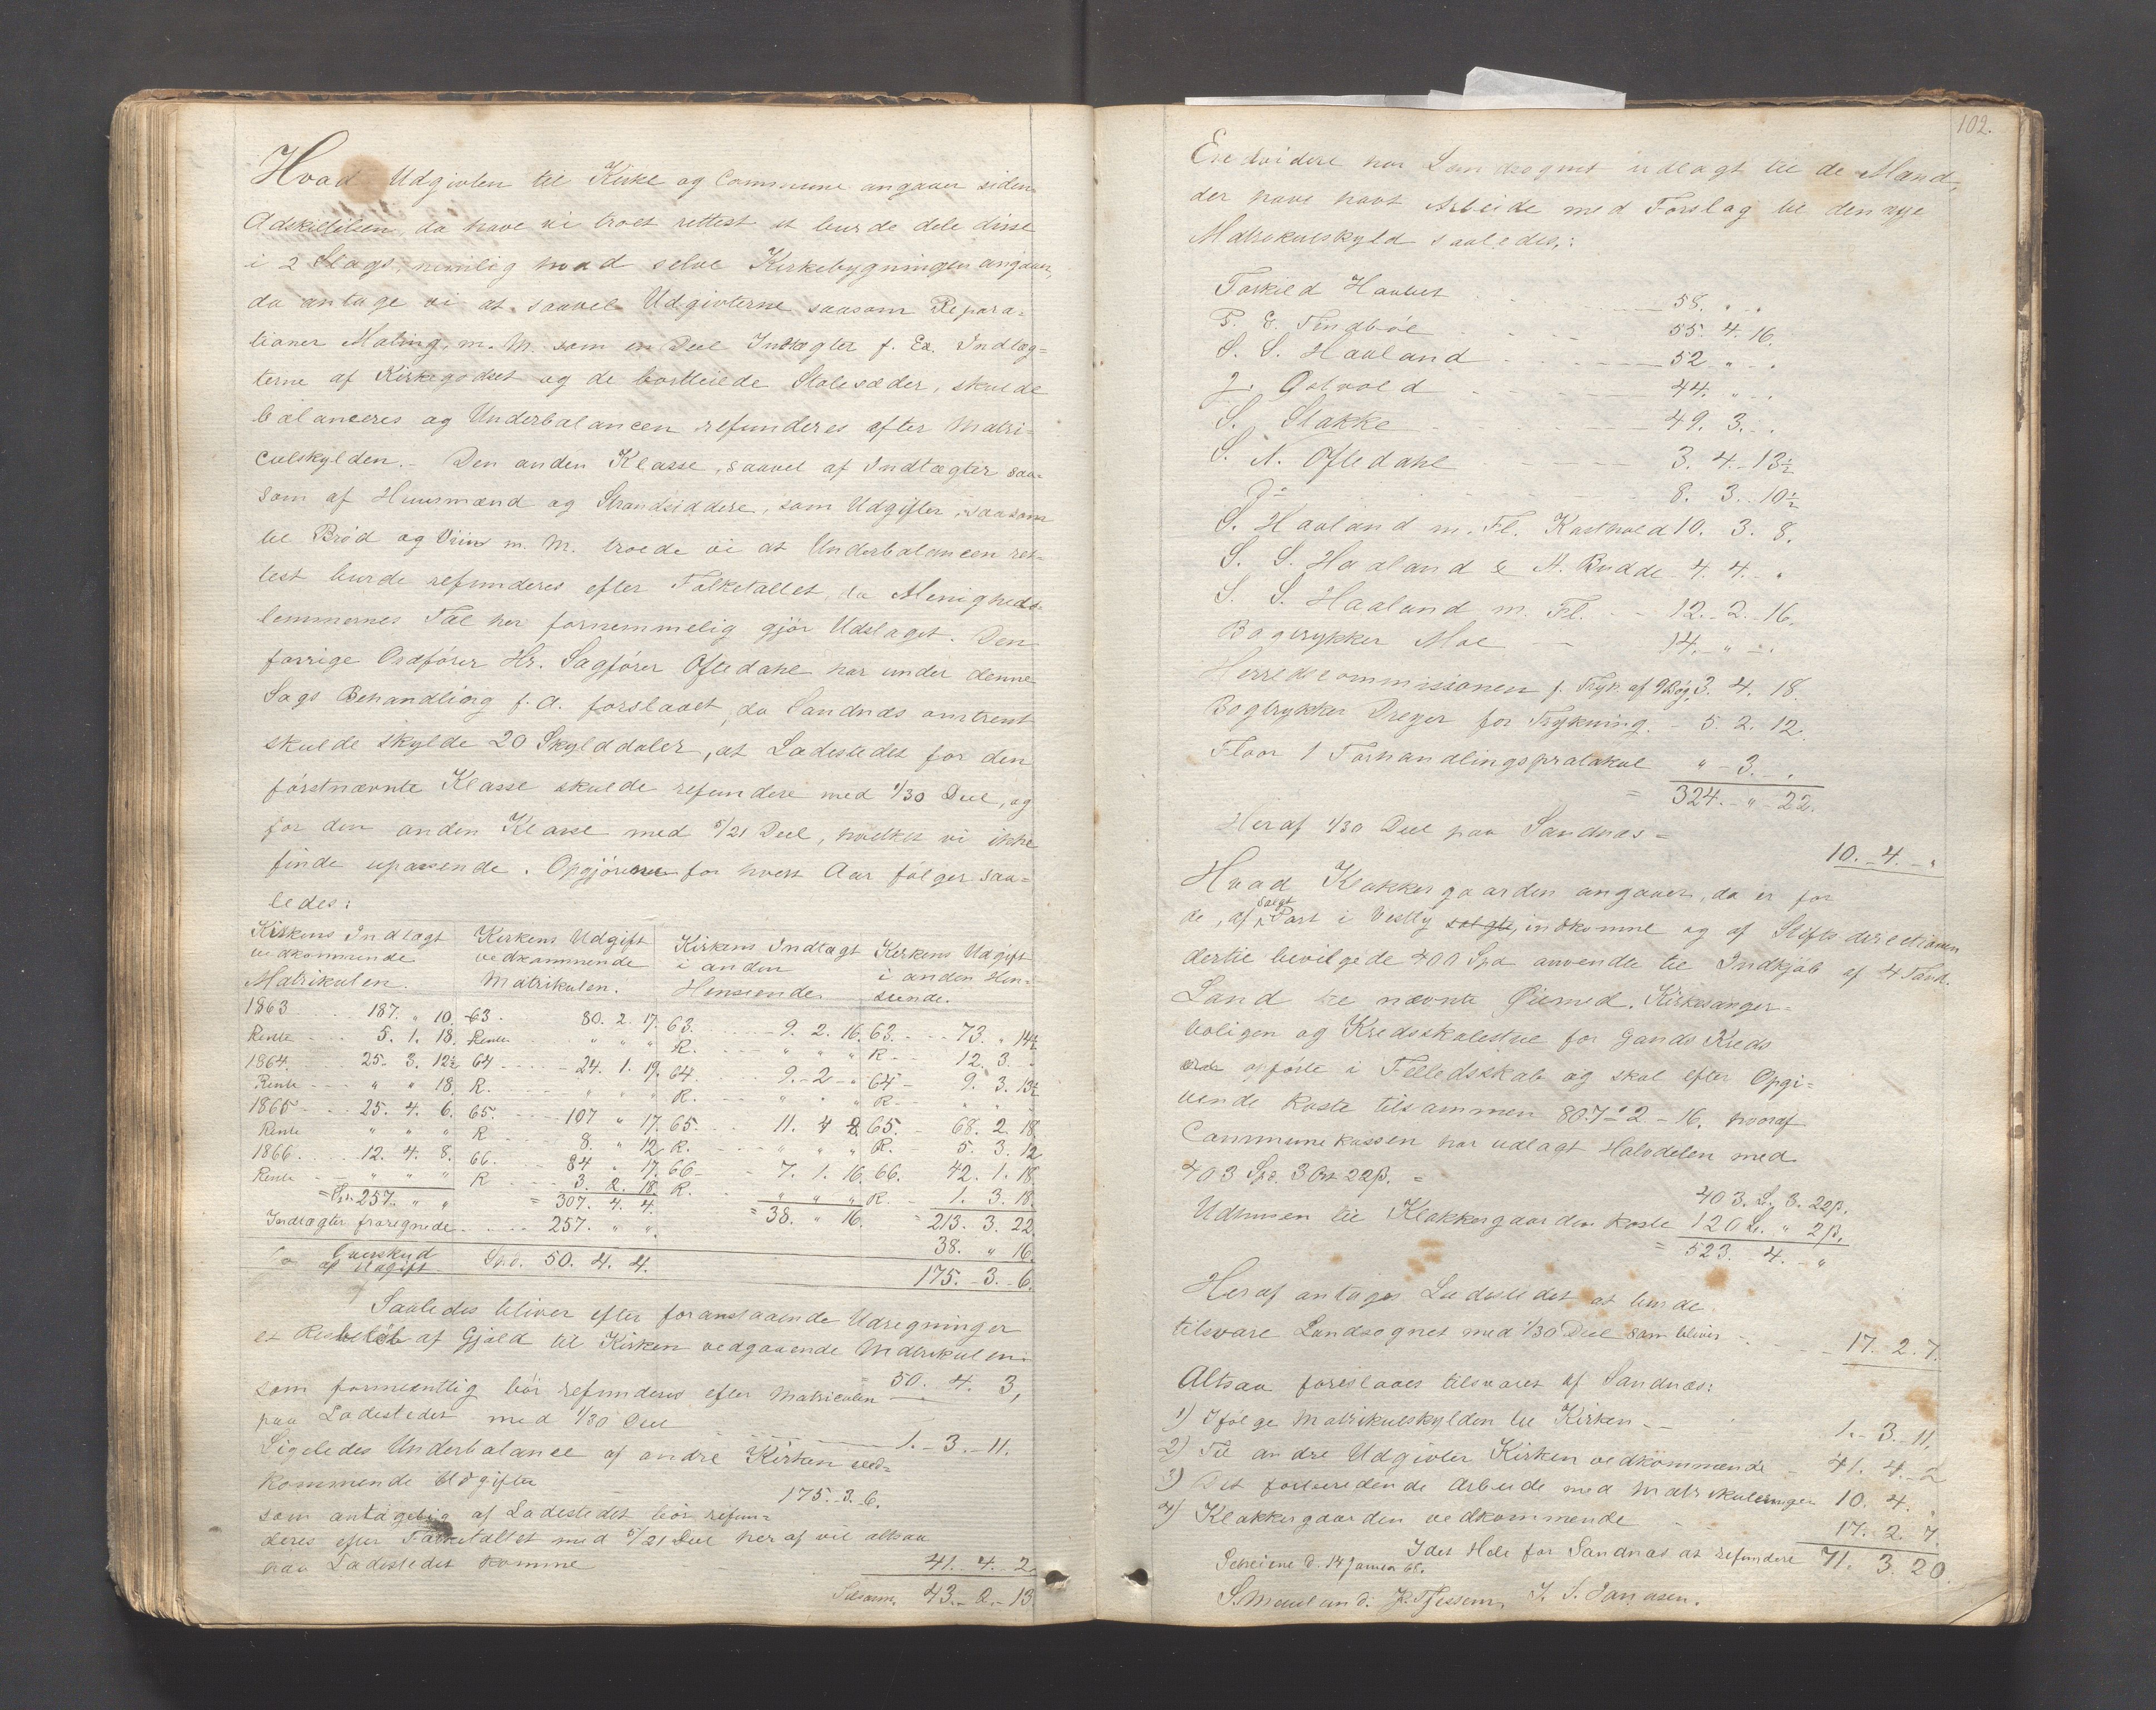 Hvad Udgivten til Kirke og Commune angaaer siden
Adskillelsen, da have vi troet rettest at burde dele disse
i 2 Slags, nemlig hvad selve Kirkebygningen angaaer,
da antage vi at saavel Udgivterne saasom Repara=
tioner Maling m. M. som en Deel Indtægter f. Ex. Indtæg=
terne af Kirkegodset og de bortleiede Stolesæder, skulde
balanceres og Underbalancen refunderes efter Matri=
culskylden. – Den anden Klasse, saavel af Indtægter saa=
som af Huusmænd og Strandsiddere, som Udgifter, saasom
til Brød og Viin m. M. troede vi at Underbalancen ret=
test burde refunderes efter Folketallet, da Menigheds=
lemmernes Tal her fornemmelig gjør Udslaget. Den
forrige Ordfører Hr. Sagfører Oftedahl har under denne
Sags Behandling f. A. forslaaet, da Sandnæs omtrent
skulde skylde 20 Skylddaler, at Ladestedet for den
førstnævnte Klasse skulde refundere med 1/30 Deel, og
for den anden Klasse med 5/21 Deel, hvilket vi ikke
finde upassende. Opgjørene for hvert Aar følger saa=
ledes:
Kirkens Indtægt vedkommende Matrikulen. Kirkens Udgift vedkommende Matrikulen. Kirkens Indtægt i anden Henseende. Kirkens Udgift i anden Hen-seende.
1863 187. " 10. 63. 80. 2. 17. 63. 9. 2. 16. 63. 73. " 14½
Rente 5. 1. 18. Rente " " " R. " " " R 12. 3. "
1864. 25. 3. 12½ 64 24. 1. 19. 64. 9. 2 " 64 9. 3. 13½
Rente " " 18. R. " " " R. " " " R " " "
1865 25. 4. 6. 65. 107 " 17. 65. 11. 4 2. 65. 68. 2. 18.
Rente " " " R 8. " 12. R. " " " R. 5. 3. 12
1866. 12. 4. 8. 66. 84 " 17. 66 7. 1. 16. 66. 42. 1. 18.
Rente " " " R 3. 2. 18. R. " " " R 1. 3. 18.
= Spd. 257. " " = 307. 4. 4. = 38. " 16. = 213. 3. 22.
Indtægter fraregnede 257. " " 38. " 16.
Overskud af Udgift Spd. 50. 4. 4. 175. 3. 6.
Saaledes bliver efter foranstaaende Udregninger
et Restbeløb af Gjæld til Kirken vedgaaende Matrikulen
som formentlig bør refunderes efter Matriculen 50. 4. 3,
paa Ladestedet med 1/30 Deel 1. 3. 11.
Ligeledes Underbalance af andre Kirken ved=
kommende Udgifter 175. 3. 6.
som antagelig af Ladestedet bør refun=
deres efter Folketallet med 5/21 Deel heraf vil altsaa
paa Ladestedet komme 41. 4. 2.
Tilsamm. 43. 2. 13.
102.
Endvidere har Landsognet udlagt til de Mænd,
der have havt Arbeide med Forslag til den nye
Matrikulskyld saaledes:
Torkild Haabet 58. " "
T. G. Tindbøe 55. 4. 16.
S. S. Haaland 52 " "
J. Ostvold 44. " "
S. Stakke 49. 3. "
S. N. Oftedahl 3. 4. 13½
do 8. 3. 10½
S. Haaland m. Fl. Kosthold 10. 3. 8.
S. S. Haaland & A. Budde 4. 4. "
S. S. Haaland m. Fl. 12. 2. 16.
Bogtrykker Moe 14. " "
Herredscommissionen f. Tryk. af 9 Bøg. 3. 4. 18.
Bogtrykker Dreyer for Trykning 5. 2. 12.
Floor 1 Forhandlingsprotokol " 3. "
= 324. " 22.
Heraf 1/30 Deel paa Sandnæs = 10. 4. "
Hvad Klokkergaarden angaaer, da er for
de, af solgt Part i Vestly solgte, indkomne og af Stiftsdirectionen
dertil bevilgede 400 Spd anvendte til Indkjøb af 4 Tønd.
Land til nævnte Øiemed. Kirkesanger=
boligen og Kredsskolestue for Gands Kreds
ere opførte i Fælledsskab og skal efter Opgi=
vende koste tilsammen 807 2 – 16. hvoraf
Communekassen har udlagt Halvdelen med
403 Spd. 3 Ort 22β. = 403. Sp. 3. 22β.
Udhusen til Klokkergaarden koste 120 " 2β.
= 523. 4. "
Heraf antages Ladestedet at burde
tilsvare Landsognet med 1/30 Deel som bliver 17. 2. 7.
Altsaa foreslaaes tilsvaret af Sandnæs:
1) Ifølge Matrikulskylden til Kirken 1. 3. 11.
2) Til andre Udgivter Kirken vedkommende 41. 4. 2
3) Det forberedende Arbeide med Matrikuleringen 10. 4. "
4) Klokkergaarden vedkommende 17. 2. 7.
I det Hele for Sandnæs at refundere 71. 3. 20.
d. 14 Januar 68.
S. Mauland. I. S. Jonasen.